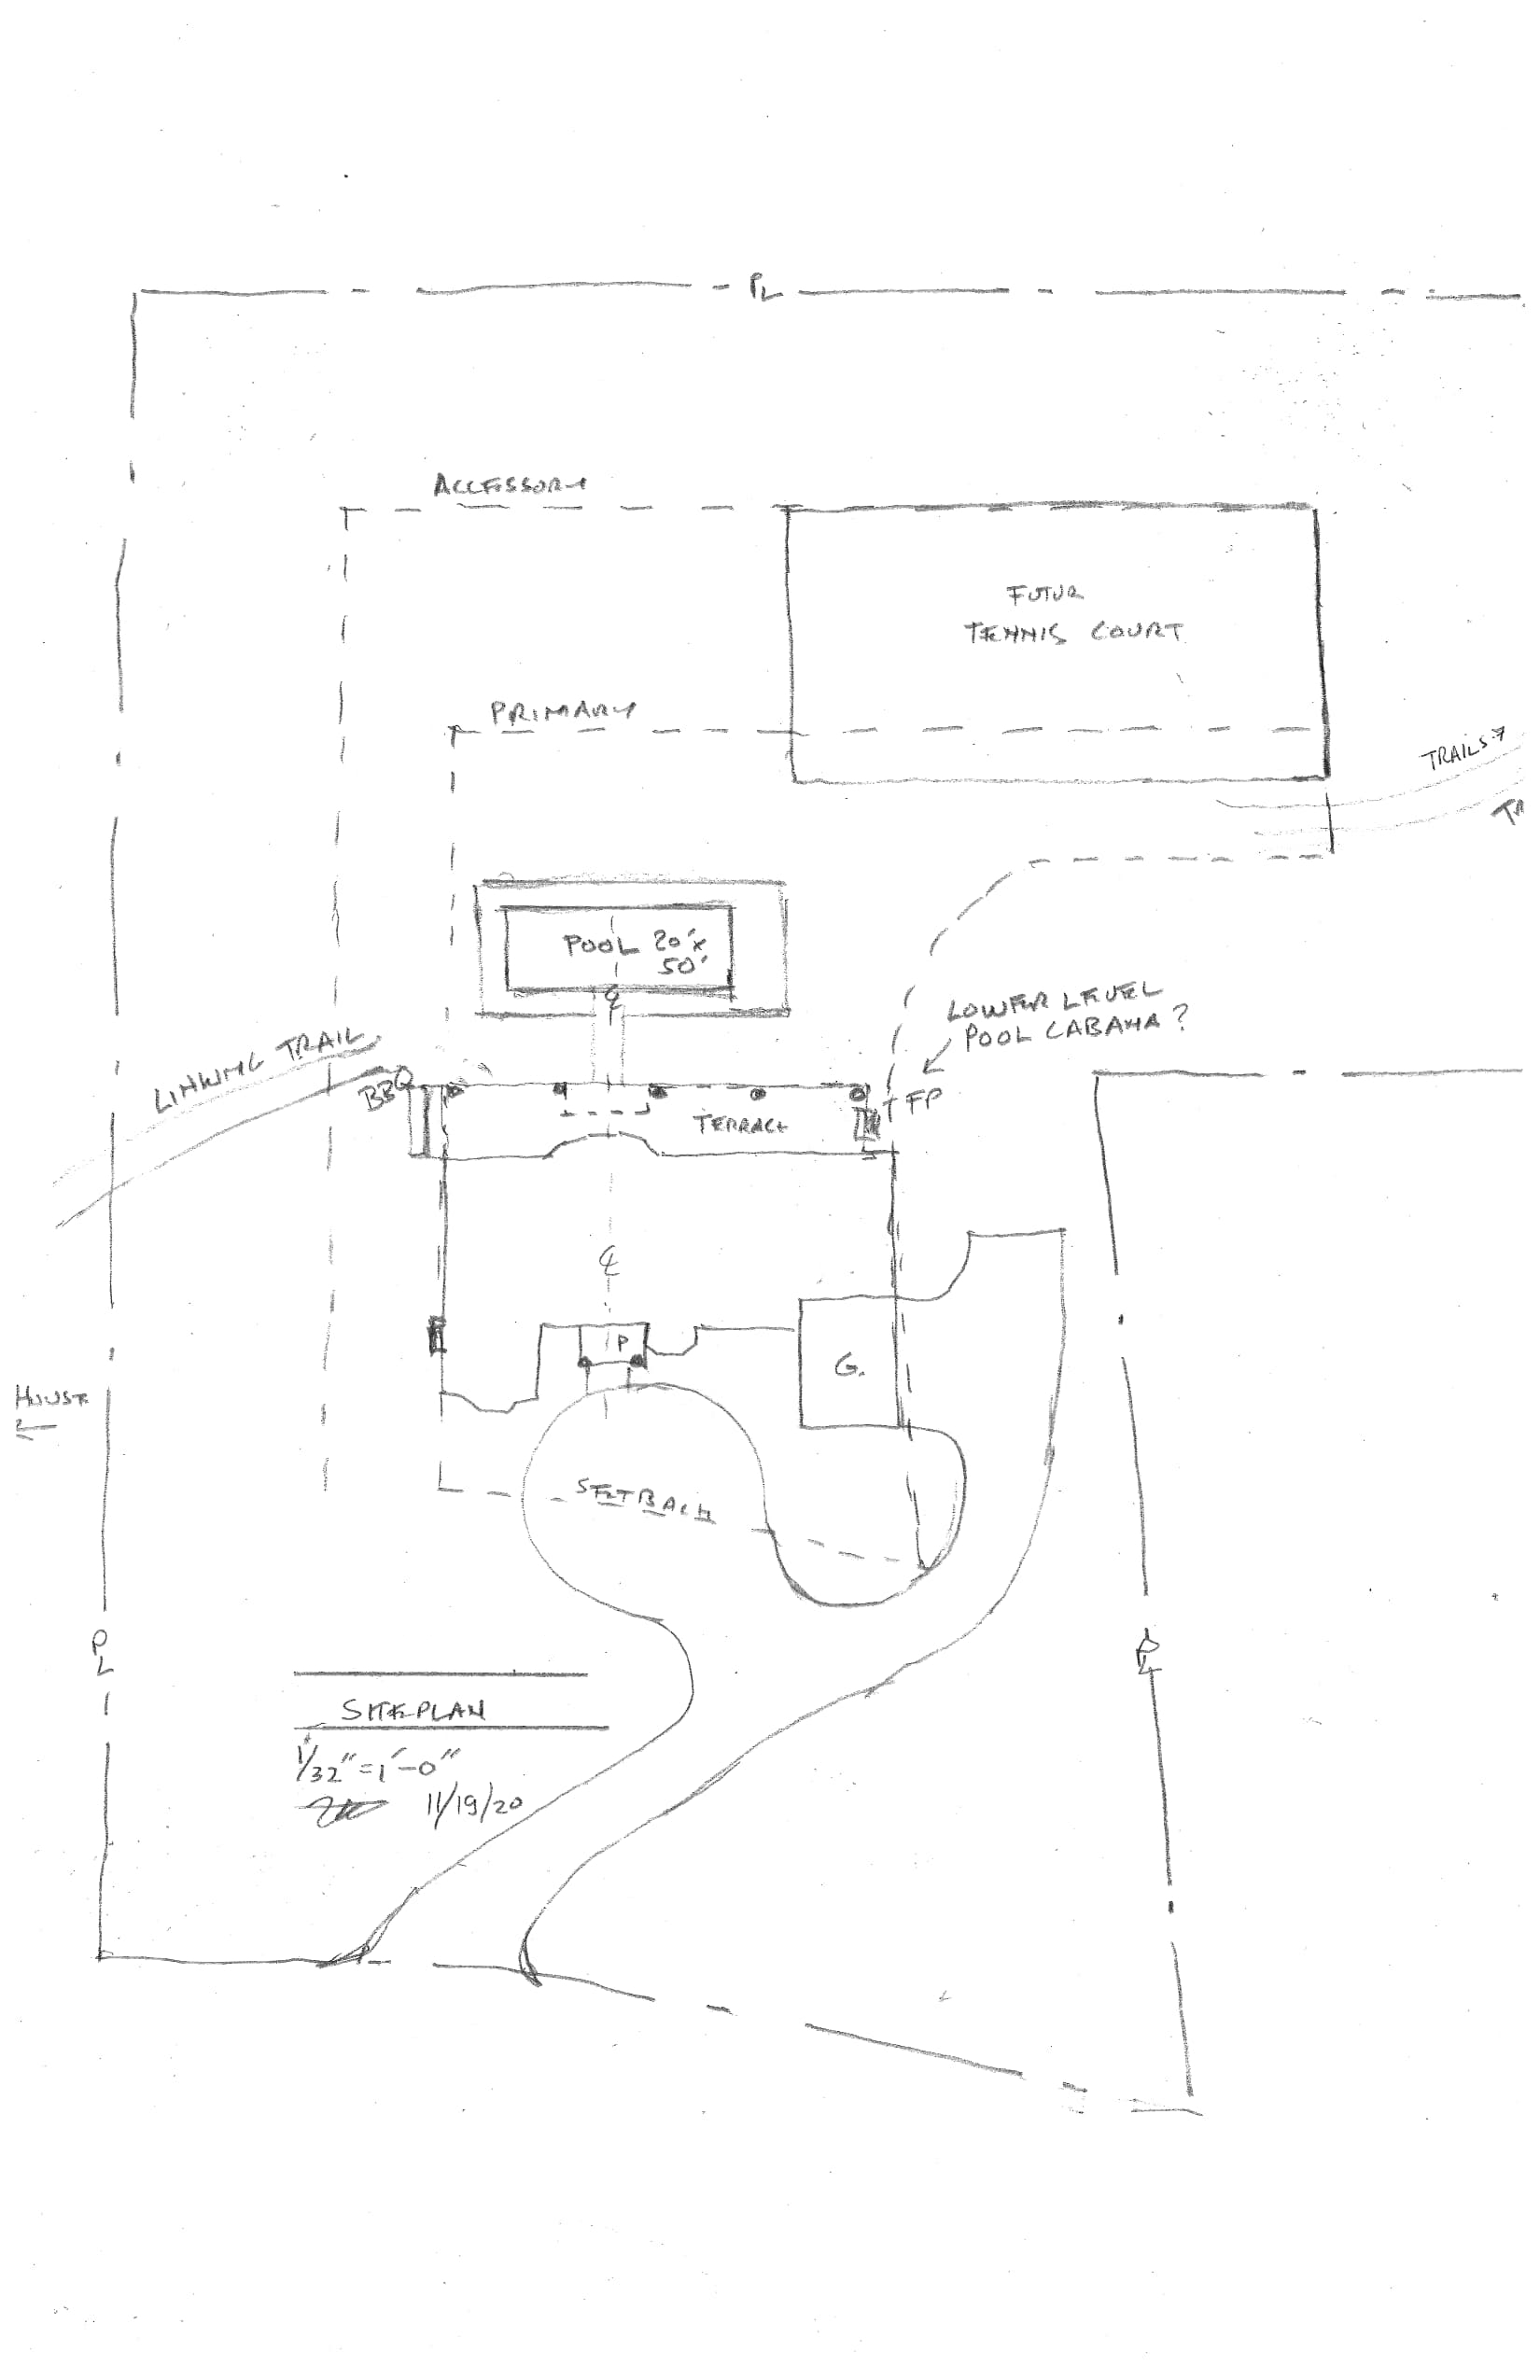 PL
ACCESSORY
FUTUR
TENNIS COURT
PRIMARY
TRAILS
TR
POOL 20'x
50'
℄
LOWER LEVEL
POOL CABANA?
LINKING TRAIL
BBQ
FP
TERRACE
℄
P
G.
HOUSE
SETBACK
PL
PL
SITE PLAN
1/32" = 1'-0"
11/19/20